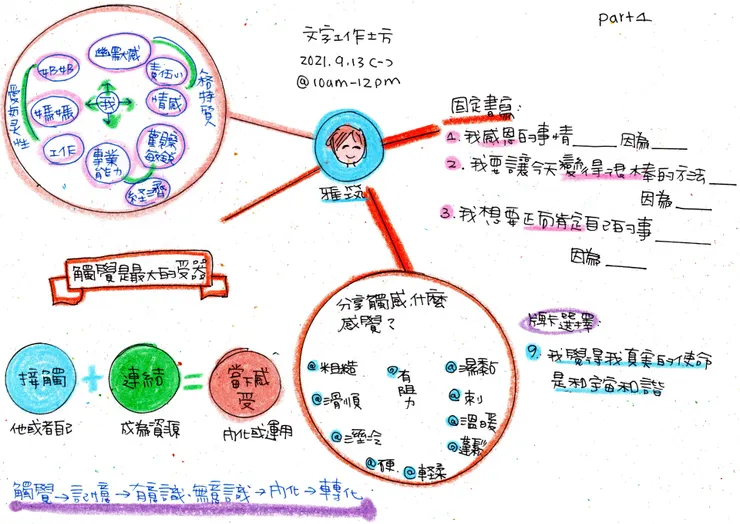 part1
文字工作坊
2021.9.13(一)
@10am-12pm
雅筑
幽默感
責任心
情感
觀察
敏銳
經濟
專業
能力
工作
媽媽
我
格特質
固定書寫:
1. 我感恩的事情____ 因為____
2. 我要讓今天變得很棒的方法__
因為____
3. 我想要正向肯定自己的事____
因為____
觸覺是最大的受器
接觸 + 連結 = 當下感受
他或者自己
成為資源
內化或運用
分享觸感什麼
感覺?
@粗糙
@滑順
@溼冷
@硬
@輕柔
@有阻力
@濕黏
@刺
@溫暖
@蓬鬆
牌卡選擇:
9. 我覺得我真實的使命
是和宇宙和諧
觸覺→記憶→有意識.無意識→內化→轉化